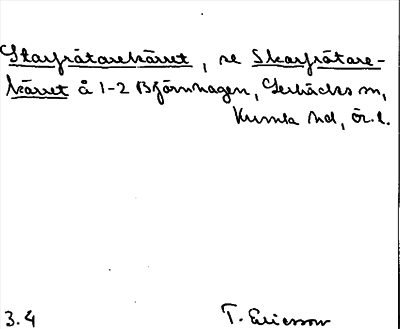 Starfrätarekärret, se Skarfrätare-
kärret å 1-2 Björnhagen, Serbäcks m,
Kumla hd, ör.l.
3.4 T. Ericsson